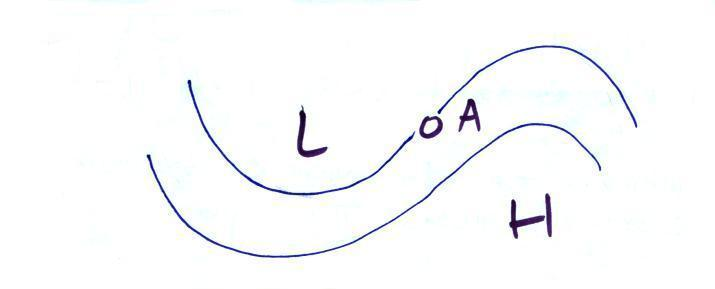 L
A
H